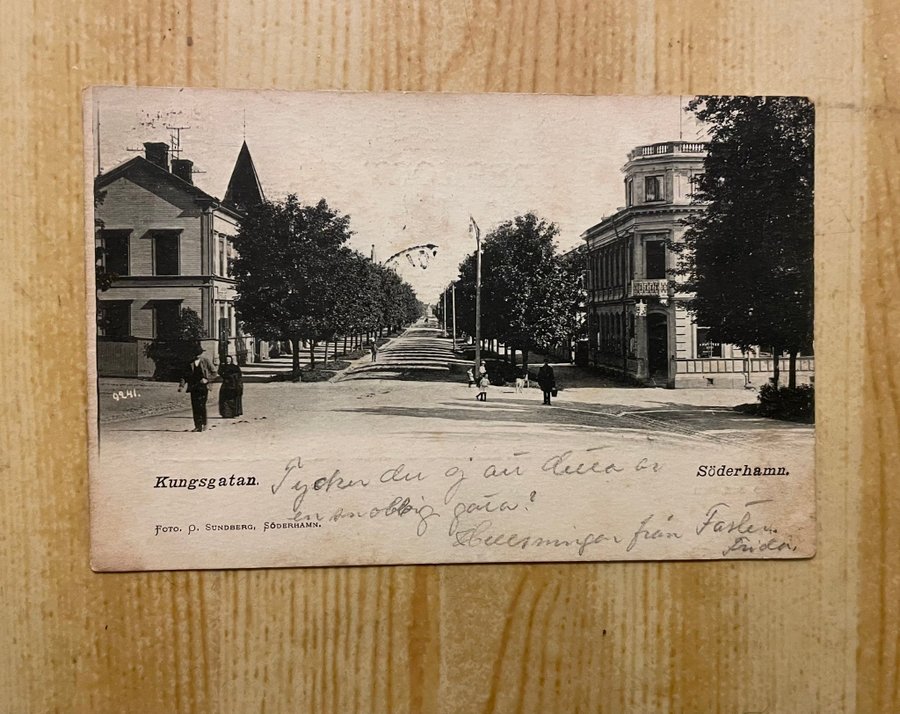 9241.
Kungsgatan.
Söderhamn.
Tycker du ej att detta är
en snobbig gata?
Foto. O. Sundberg, Söderhamn.
Helsningar från Faster
Frida.